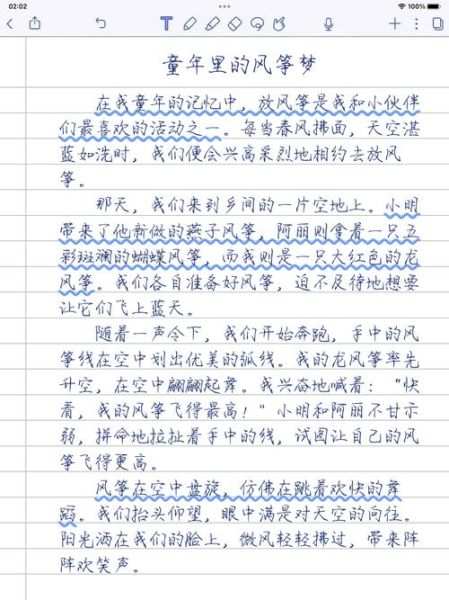 02:02
100%
童年里的风筝梦
在我童年的记忆中，放风筝是我和小伙伴
们最喜欢的活动之一。每当春风拂面，天空湛
蓝如洗时，我们便会兴高采烈地相约去放风
筝。
那天，我们来到乡间的一片空地上。小明
带来了他新做的燕子风筝，阿丽则拿着一只五
彩斑斓的蝴蝶风筝，而我则是一只大红色的龙
风筝。我们各自准备好风筝，迫不及待地想要
让它们飞上蓝天。
随着一声令下，我们开始奔跑，手中的风
筝线在空中划出优美的弧线。我的龙风筝率先
升空，在空中翩翩起舞。我兴奋地喊着：“快
看，我的风筝飞得最高！”小明和阿丽不甘示
弱，拼命地拉扯着手中的线，试图让自己的风
筝飞得更高。
风筝在空中盘旋，仿佛在跳着欢快的舞
蹈。我们抬头仰望，眼中满是对天空的向往。
阳光洒在我们的脸上，微风轻轻拂过，带来阵
阵欢笑声。